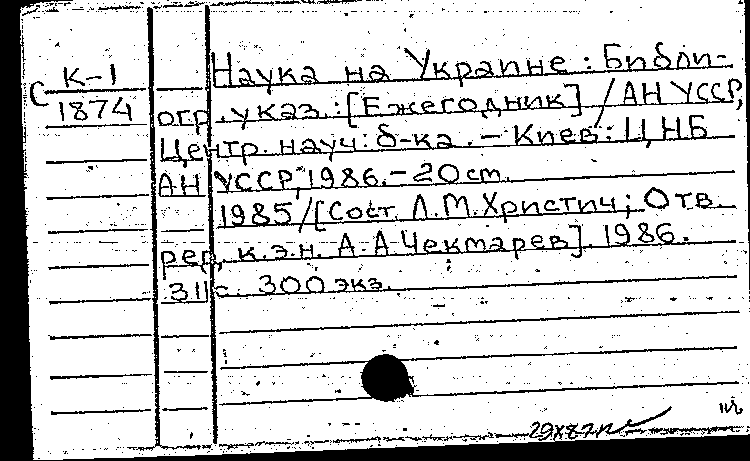 С К-1
1874
Наука на Украине : Библи-
огр. указ. : [Ежегодник] / АН УССР,
Центр. науч. б-ка . – Киев : ЦНБ
АН УССР, 1986. – 20 см.
1985 / [Сост. Л.М.Христич ; Отв.
ред. к.э.н. А.А.Чекмарев]. 1986.
311с. 300 экз.